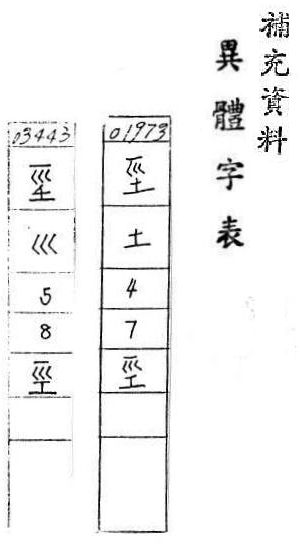 補充資料
異體字表
01973
坙
土
4
7
巠
03443
𢀖
巛
5
8
巠